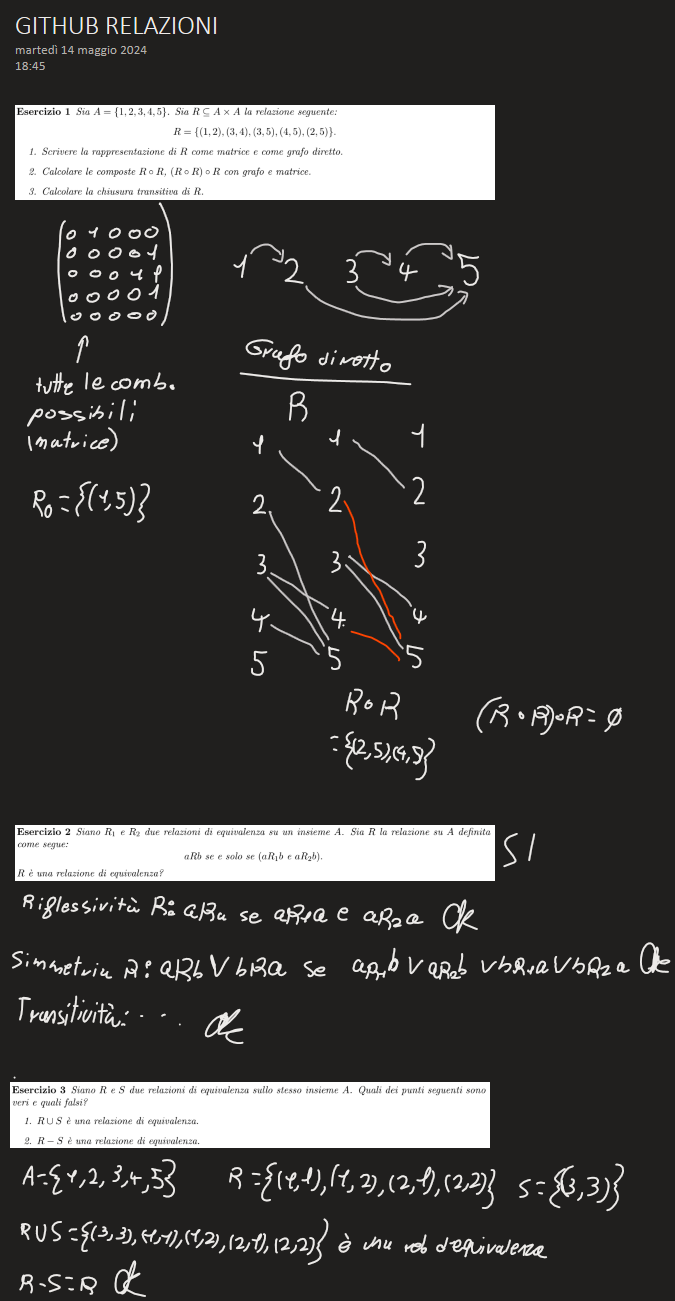 GITHUB RELAZIONI
martedì 14 maggio 2024
18:45
Esercizio 1 Sia A = {1, 2, 3, 4, 5}. Sia R ⊆ A × A la relazione seguente:
R = {(1, 2), (3, 4), (3, 5), (4, 5), (2, 5)}.
1. Scrivere la rappresentazione di R come matrice e come grafo diretto.
2. Calcolare le composte R ∘ R, (R ∘ R) ∘ R con grafo e matrice.
3. Calcolare la chiusura transitiva di R.
0 1 0 0 0
0 0 0 0 1
0 0 0 1 1
0 0 0 0 1
0 0 0 0 0
1 2 3 4 5
tutte le comb.
possibili
(matrice)
Grafo diretto
R
1 1 1
2 2 2
3 3 3
4 4 4
5 5 5
R₀ = {(1,5)}
R∘R
= {(2,5),(4,5)}
(R∘R)∘R = ∅
Esercizio 2 Siano R₁ e R₂ due relazioni di equivalenza su un insieme A. Sia R la relazione su A definita
come segue:
aRb se e solo se (aR₁b e aR₂b).
R è una relazione di equivalenza?
SI
Riflessività R: aRa se aR₁a e aR₂a Ok
Simmetria R: aRb V bRa se aR₁b V aR₂b V bR₁a V bR₂a Ok
Transitività: .... ok
Esercizio 3 Siano R e S due relazioni di equivalenza sullo stesso insieme A. Quali dei punti seguenti sono
veri e quali falsi?
1. R ∪ S è una relazione di equivalenza.
2. R − S è una relazione di equivalenza.
A={1,2,3,4,5} R={(1,1),(1,2),(2,1),(2,2)} S={(3,3)}
RUS={(3,3),(1,1),(1,2),(2,1),(2,2)} è una rel d'equivalenza
R-S=R Ok